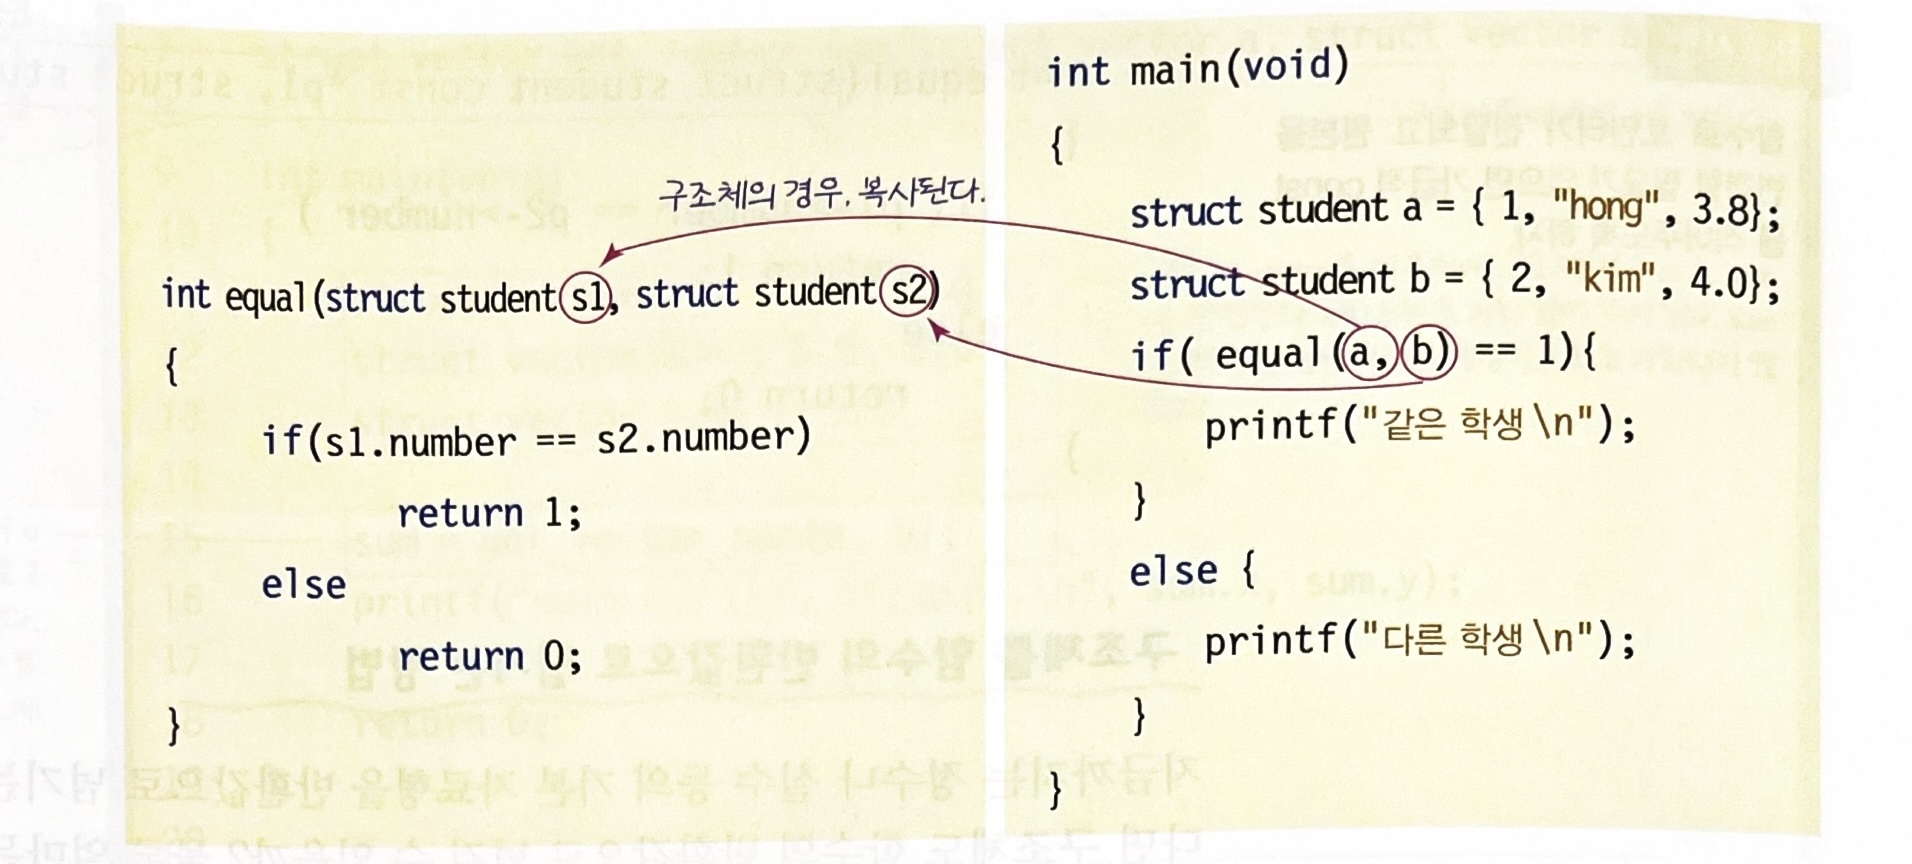 구조체의 경우, 복사된다.
int equal(struct student s1, struct student s2)
{
if(s1.number == s2.number)
return 1;
else
return 0;
}
int main(void)
{
struct student a = { 1, "hong", 3.8};
struct student b = { 2, "kim", 4.0};
if( equal(a, b) == 1){
printf("같은 학생 \n");
}
else {
printf("다른 학생 \n");
}
}